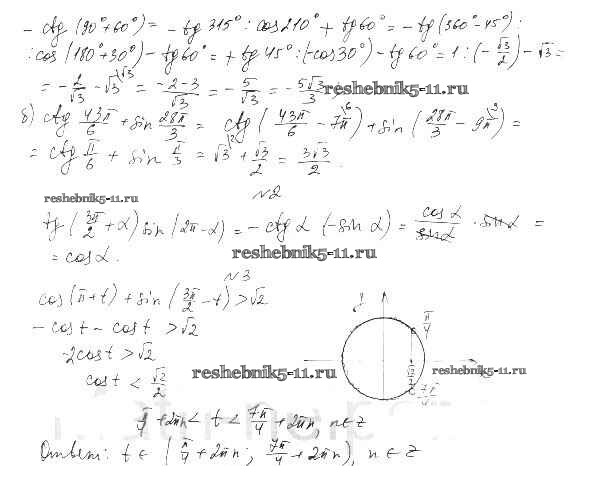 - ctg (90°+60°) = - tg 315° : cos 210° + tg 60° = - tg (360°-45°) :
: cos (180°+30°) - tg 60° = + tg 45° : (- cos 30°) - tg 60° = 1 : (- √3/2) - √3 =
= - 2/√3 - √3 \√3 = (-2-3)/√3 = - 5/√3 = - 5√3/3 ;
reshebnik5-11.ru
б) ctg 43π/6 + sin 28π/3 = ctg ( 43π/6 - 7π \6 ) + sin ( 28π/3 - 9π \3 ) =
= ctg π/6 + sin π/3 = √3 \2 + √3/2 = 3√3/2 .
reshebnik5-11.ru
№2
tg ( 3π/2 + α) sin (2π - α) = - ctg α (- sin α) = cos α/sin α · sin α =
= cos α.
reshebnik5-11.ru
№3
cos (π + t) + sin ( 3π/2 - t) > √2
- cos t - cos t > √2
-2 cos t > √2
cos t < √2/2
reshebnik5-11.ru
π/4
√2/2
reshebnik5-11.ru
7π/4
π/4 + 2πn < t < 7π/4 + 2πn, n ∈ z
Ответ: t ∈ ( π/4 + 2πn ; 7π/4 + 2πn ), n ∈ z